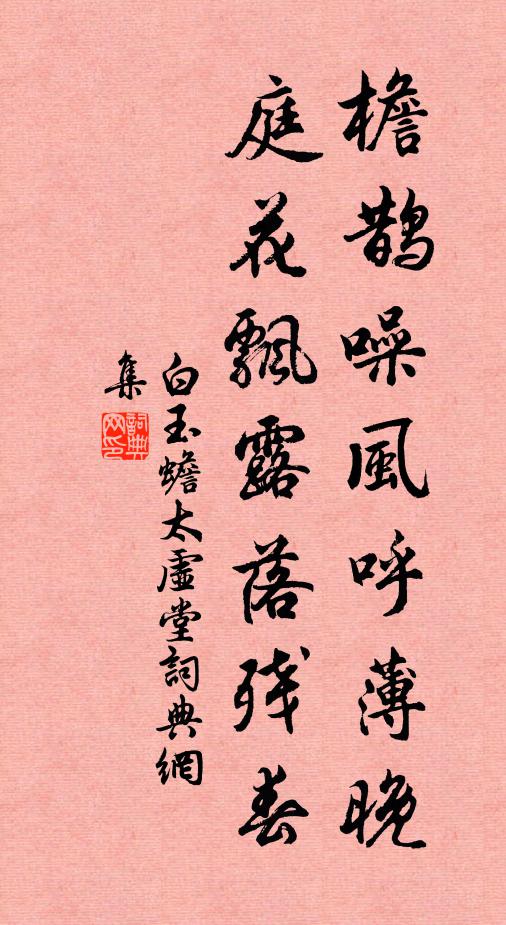 檐鹊噪風呼薄晚
庭花飄露落残春
白玉蟾太虛堂詞典網
集
詞典
网印